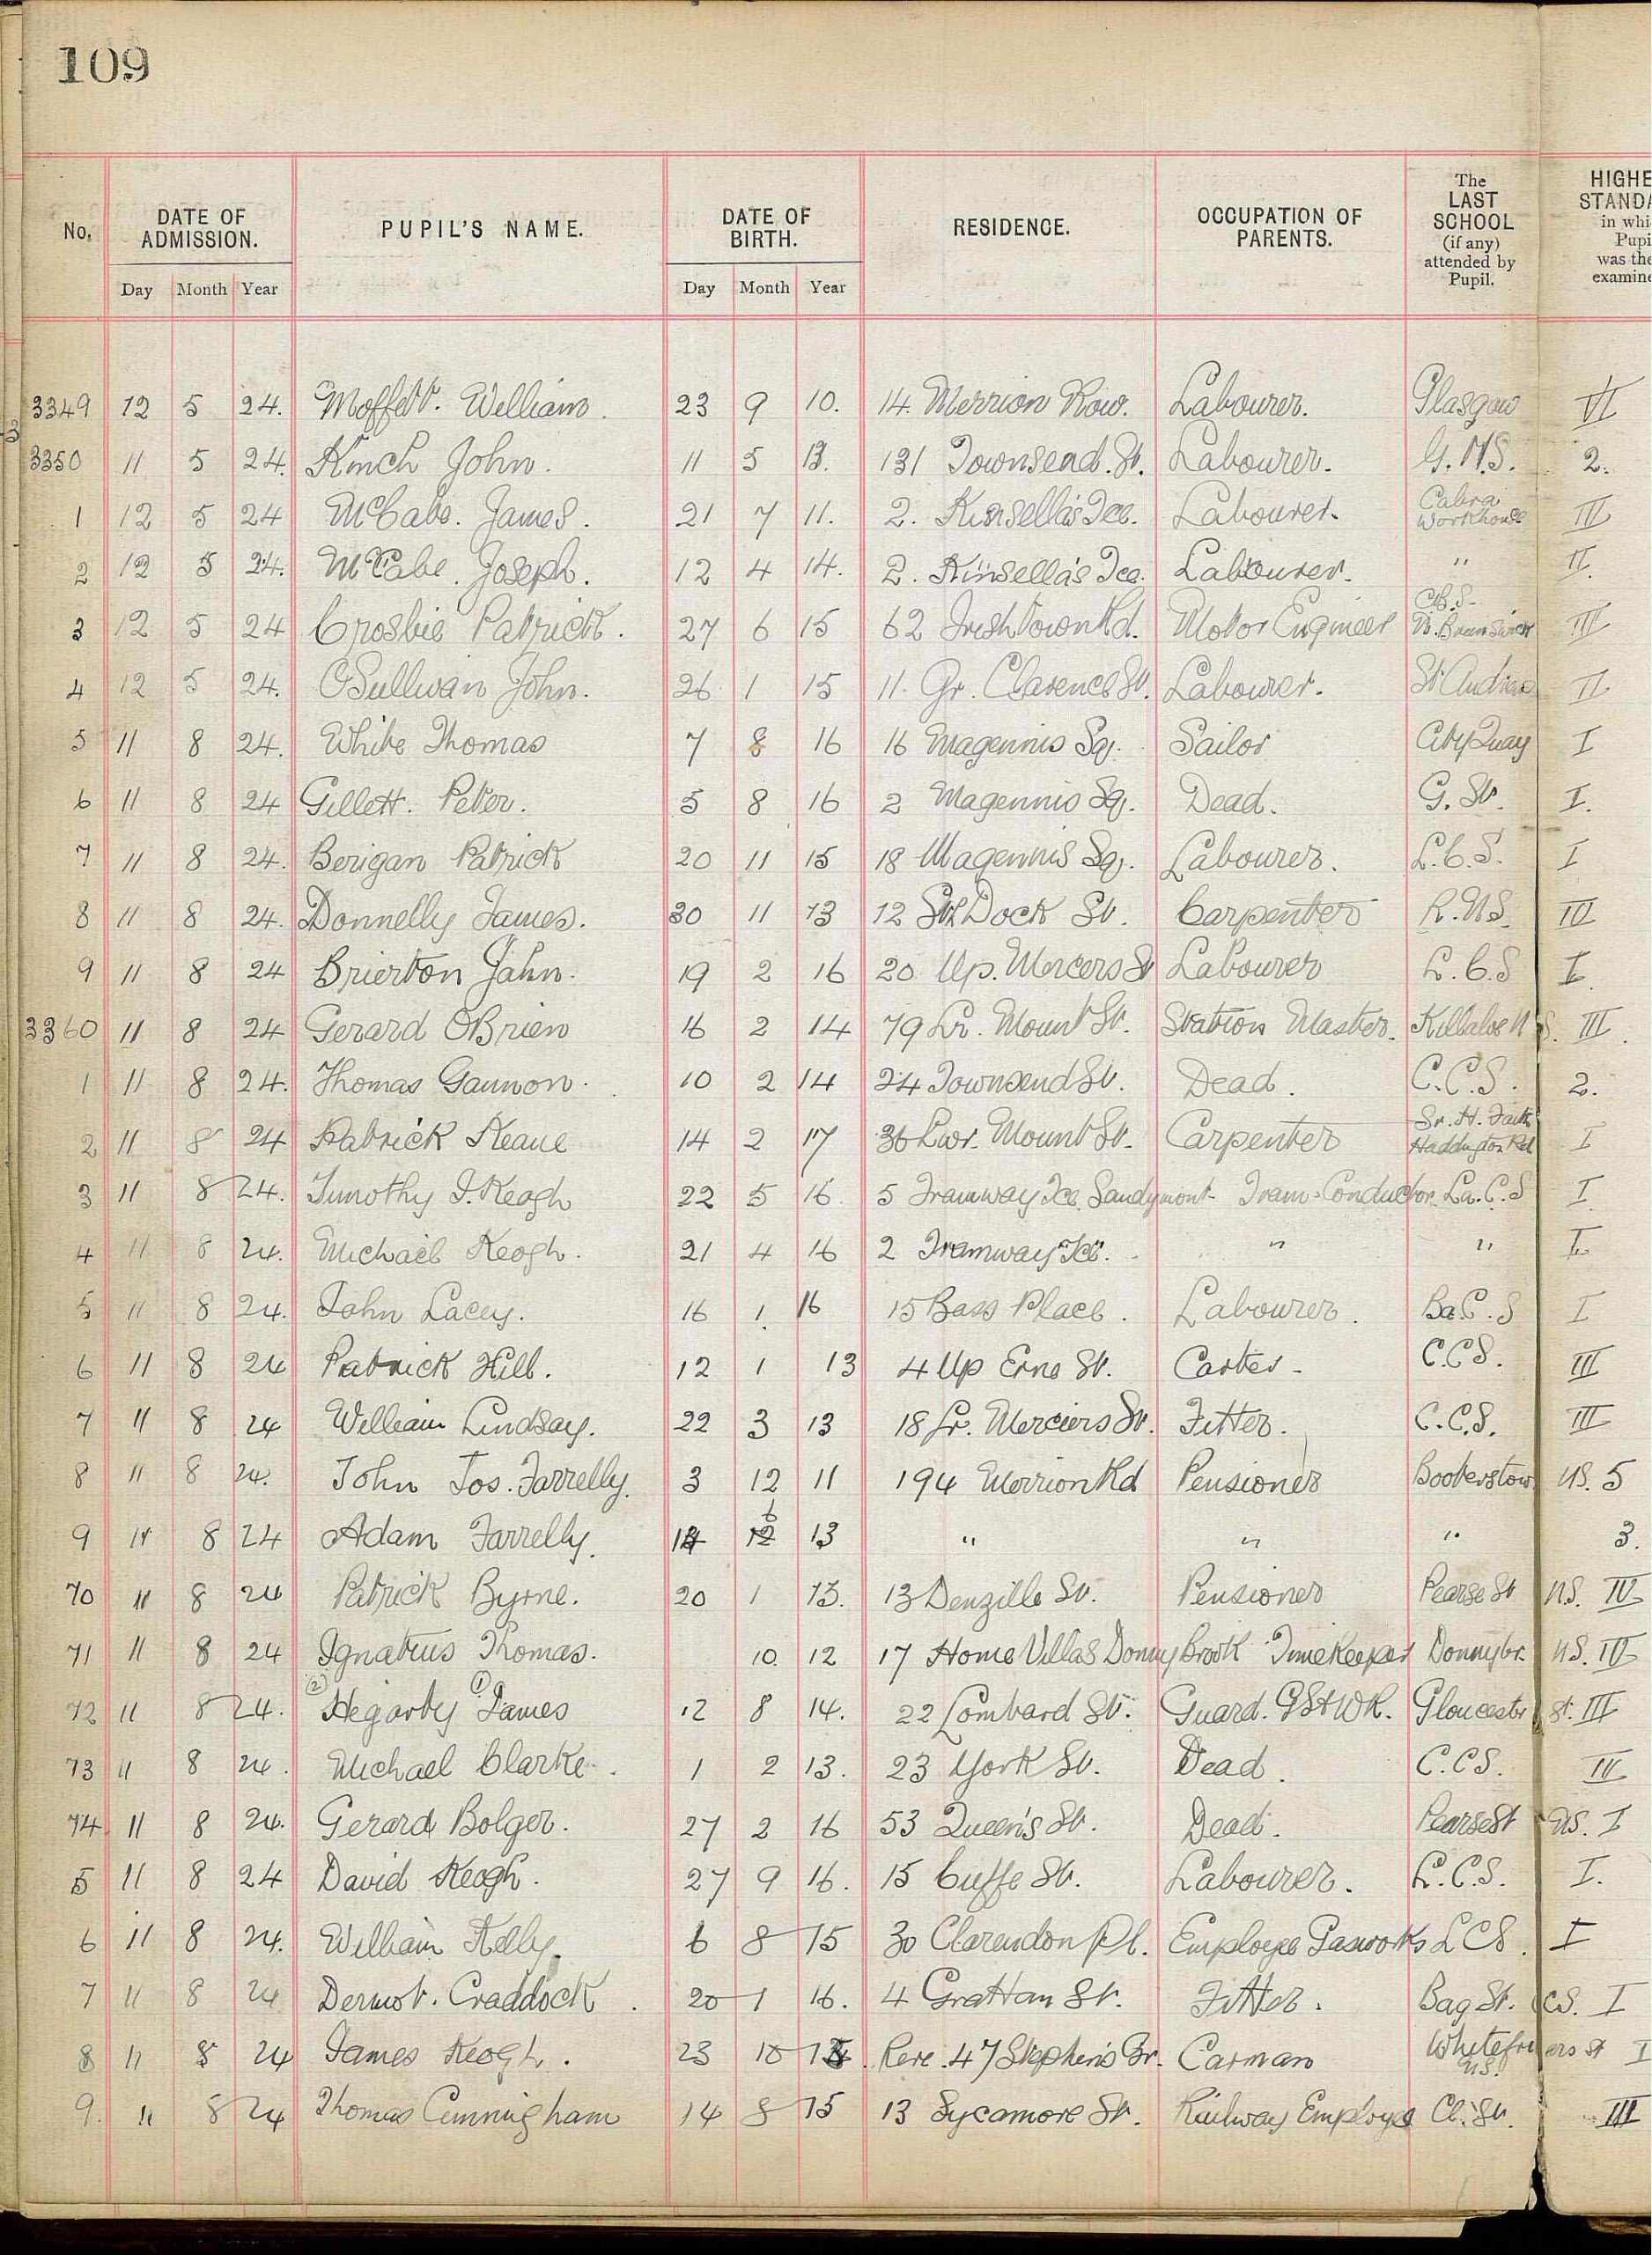 109
No. DATE OF ADMISSION. PUPIL'S NAME. DATE OF BIRTH. RESIDENCE. OCCUPATION OF PARENTS. The LAST SCHOOL (if any) attended by Pupil. HIGHE STANDA in whi Pupi was the examine
Day Month Year Day Month Year
3349 12 5 24. Moffett. William. 23 9 10. 14. Merrion Row. Labourer. Glasgow VI
3350 11 5 24. Kinch John. 11 5 13. 131 Townsend. St. Labourer. G.N.S. 2.
1 12 5 24 McCabe. James. 21 7 11. 2. Kinsella's Tce. Labourer. Cabra Workhouse III
2 12 5 24. McCabe. Joseph. 12 4 14. 2. Kinsella's Tce. Labourer. " II.
3 12 5 24 Crosbie Patrick. 27 6 15 62 Irishtown Rd. Motor Engineer C.B.S. N. Brunswick III
4 12 5 24. O'Sullivan John. 26 1 15 11. Gr. Clarence St. Labourer. St Andrew II
5 11 8 24. White Thomas 7 8 16 16 Magennis Sq. Sailor City Quay I
6 11 8 24 Gillett. Peter. 5 8 16 2 Magennis Sq. Dead. G. St. I.
7 11 8 24. Berigan Patrick 20 11 15 18 Magennis Sq. Labourer. L.C.S. I
8 11 8 24. Donnelly James. 30 11 13 12 Sth Dock St. Carpenter R.N.S. III
9 11 8 24 Brierton John. 19 2 16 20 Up. Mercers St Labourer L.C.S I.
3360 11 8 24 Gerard O'Brien 16 2 14 79 Lr. Mount St. Station Master. Killaloe N S. III.
1 11 8 24. Thomas Gannon. 10 2 14 24 Townsend St. Dead. C.C.S. 2.
2 11 8 24 Patrick Keane 14 2 17 36 Lwr. Mount St. Carpenter Sr. H. Faith Haddington Rd I
3 11 8 24. Timothy J. Keogh 22 5 16. 5 Tramway Tce. Sandymont Tram-Conductor. La.C.S I.
4 11 8 24. Michael Keogh. 21 4 16 2 Tramway Tce. " " I
5 11 8 24. John Lacey. 16 1. 16 15 Bass Place. Labourer. Ba C.S I
6 11 8 24 Patrick Hill. 12 1 13 4 Up Erne St. Carter. C.C.S. III
7 11 8 24 William Lindsay. 22 3 13 18 Lr. Merciers St. Fitter. C.C.S. III
8 11 8 24. John Jos. Farrelly. 3 12 11 194 Merrion Rd Pensioner Booterstow NS. 5
9 11 8 24 Adam Farrelly. 14 12 6 13 " " " 3.
70 11 8 24 Patrick Byrne. 20 1 13. 13 Denzille St. Pensioner Pearse St N.S. IV
71 11 8 24 Ignatius Thomas. 10. 12 17 Home Villas Donnybrook Timekeeper Donnybr. N.S. IV
72 11 8 24. (2) Hegarty (1) James 12 8 14. 22 Lombard St. Guard. GS&WR. Gloucester St. III
73 11 8 24. Michael Clarke. 1 2 13. 23 York St. Dead. C.C.S. III
74 11 8 24. Gerard Bolger. 27 2 16 53 Queen's St. Dead. Pearse St N.S. I
5 11 8 24 David Keogh. 27 9 16. 15 Cuffe St. Labourer. L.C.S. I.
6 11 8 24. William Kelly. 6 8 15 30 Clarendon Pl. Employee Gasworks L C S. I
7 11 8 24 Dermot. Craddock. 20 1 16. 4 Grattan St. Fitter. Bag St. CS. I
8 11 8 24 James Keogh. 23 10 Rere. 47 Stephen's Gr. Carman Whitefriers St N.S. I
9. 11 8 24 Thomas Cunningham 14 8 15 13 Sycamore St. Railway Employee Cl. St. III